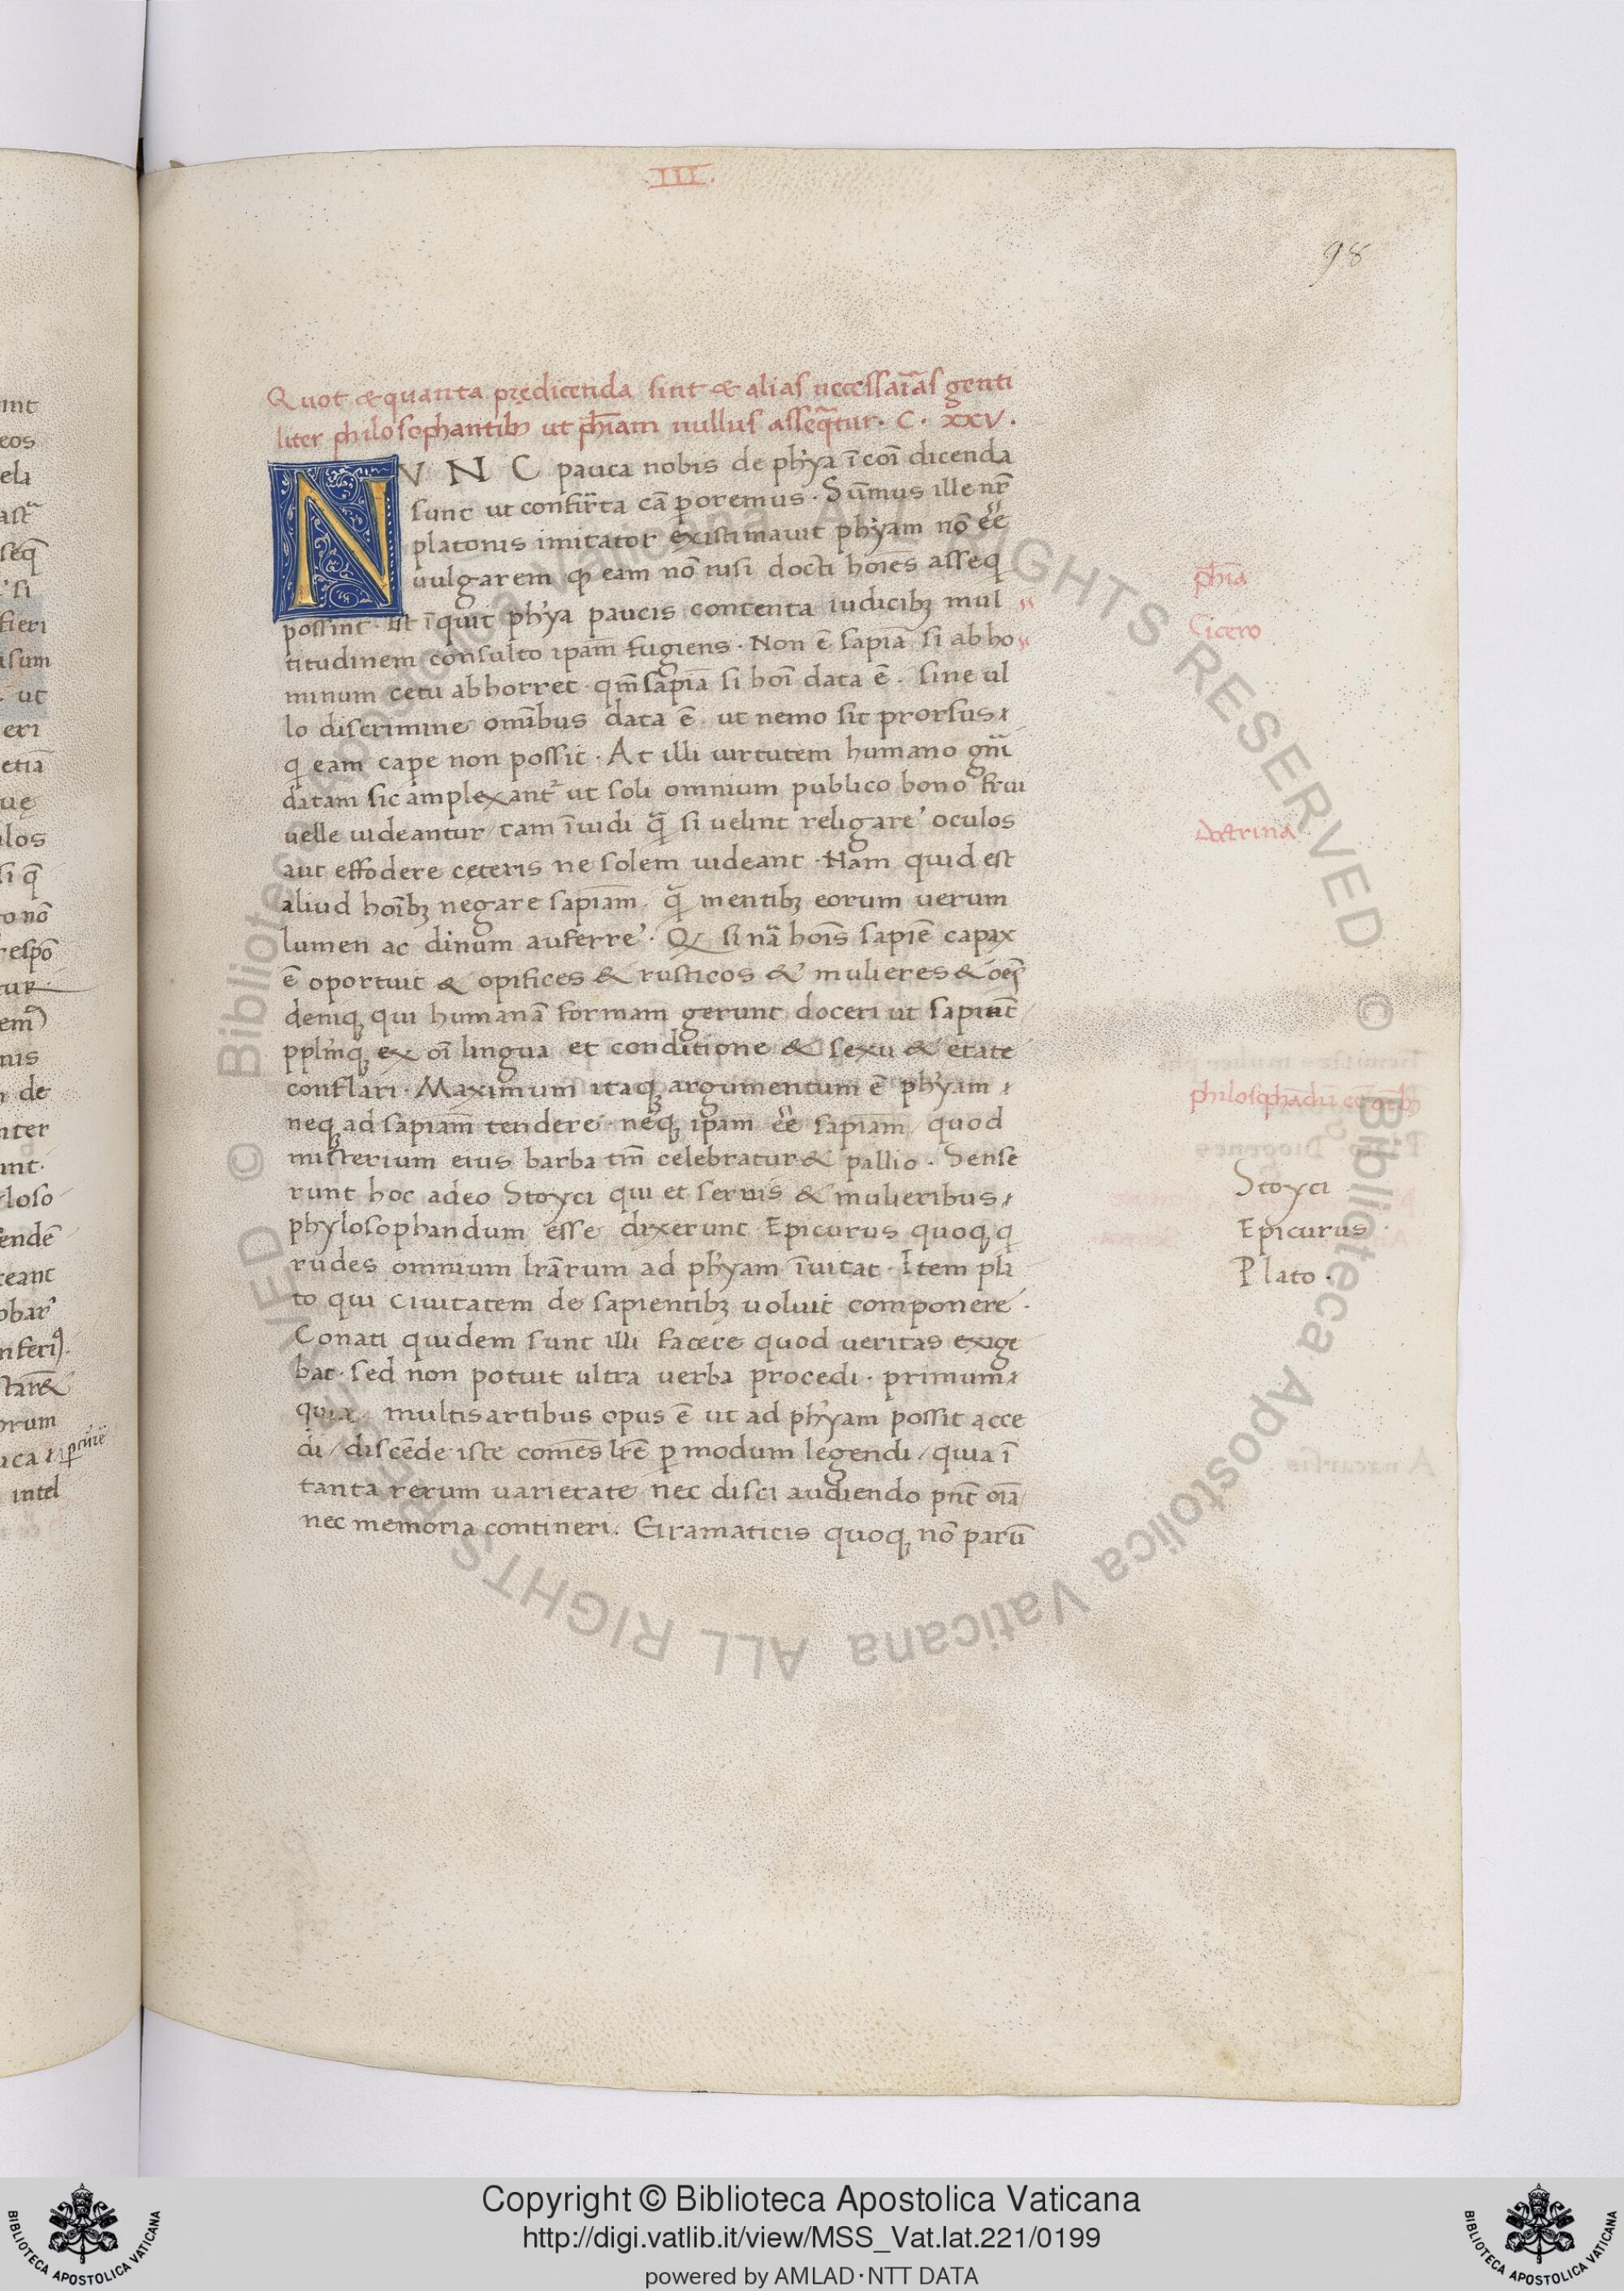 .III.
98
Quot & quanta prędicenda sint & alias necessarias genti
liter philosophantib ut ph̄iam nullus asseq̄tur. C. XXV.
NVNC pauca nobis de phya ī coī dicenda
sunt ut
platonis imitator existimauit phyam nō ēe
uulgarem eam nō nisi docti hoīes asseq
possint. Est īquit phya paucis contenta iudicibꝫ mul
titudinem consulto ipam̄ fugiens. Non ē sapiā si ab ho
minum cetu abhorret. qm̄ sapiā si hoī data ē. sine ul
lo discrimine om̄ibus data ē. ut nemo sit prorsus
q eam cape non possit. At illi uirtutem humano gn̄i
datam sic amplexant ut soli omnium publico bono frui
uelle uideantur tam īuidi q̄ si uelint religare oculos
aut effodere ceteris ne solem uideant. Nam quid est
aliud hoībꝫ negare sapiam̄. q̄ mentibꝫ eorum uerum
lumen ac diuinum auferre. Q si nā hoīs sapiē capax
ē oportuit & opifices & rusticos & mulieres & oēs
deniqꝫ qui humanā formam gerunt doceri ut sapiant
pplmqꝫ ex oī lingua et conditione & sexu & etate
conflari. Maximum itaqꝫ argumentum ē phyam
neqꝫ ad sapiam̄ tendere. neqꝫ ipam̄ ēe sapiam̄ quod
misterium eius barba tm̄ celebratur & pallio. Sense
runt hoc adeo Stoyci qui et seruis & mulieribus
phylosophandum esse dixerunt Epicurus quoqꝫ q
rudes omnium lrārum ad phyam īuitat. Item pla
to qui ciuitatem de sapientibꝫ uoluit componere.
Conati quidem sunt illi facere quod ueritas exige
bat. sed non potuit ultra uerba procedi. primum
quia multis artibus opus ē ut ad phyam possit acce
di / discēde iste comēs lrē p modum legendi / quia ī
tanta rerum uarietate nec disci audiendo pn̄t oīa
nec memoria contineri. Gramaticis quoqꝫ nō parū
ph̄ia
Cicero
doctrina
Stoyci
Epicurus
Plato.
Copyright © Biblioteca Apostolica Vaticana
http://digi.vatlib.it/view/MSS_Vat.lat.221/0199
powered by AMLAD·NTT DATA
BIBLIOTECA APOSTOLICA VATICANA
BIBLIOTECA APOSTOLICA VATICANA
© Biblioteca Apostolica Vaticana ALL RIGHTS RESERVED © Biblioteca Apostolica Vaticana ALL RIGHTS RESERVED